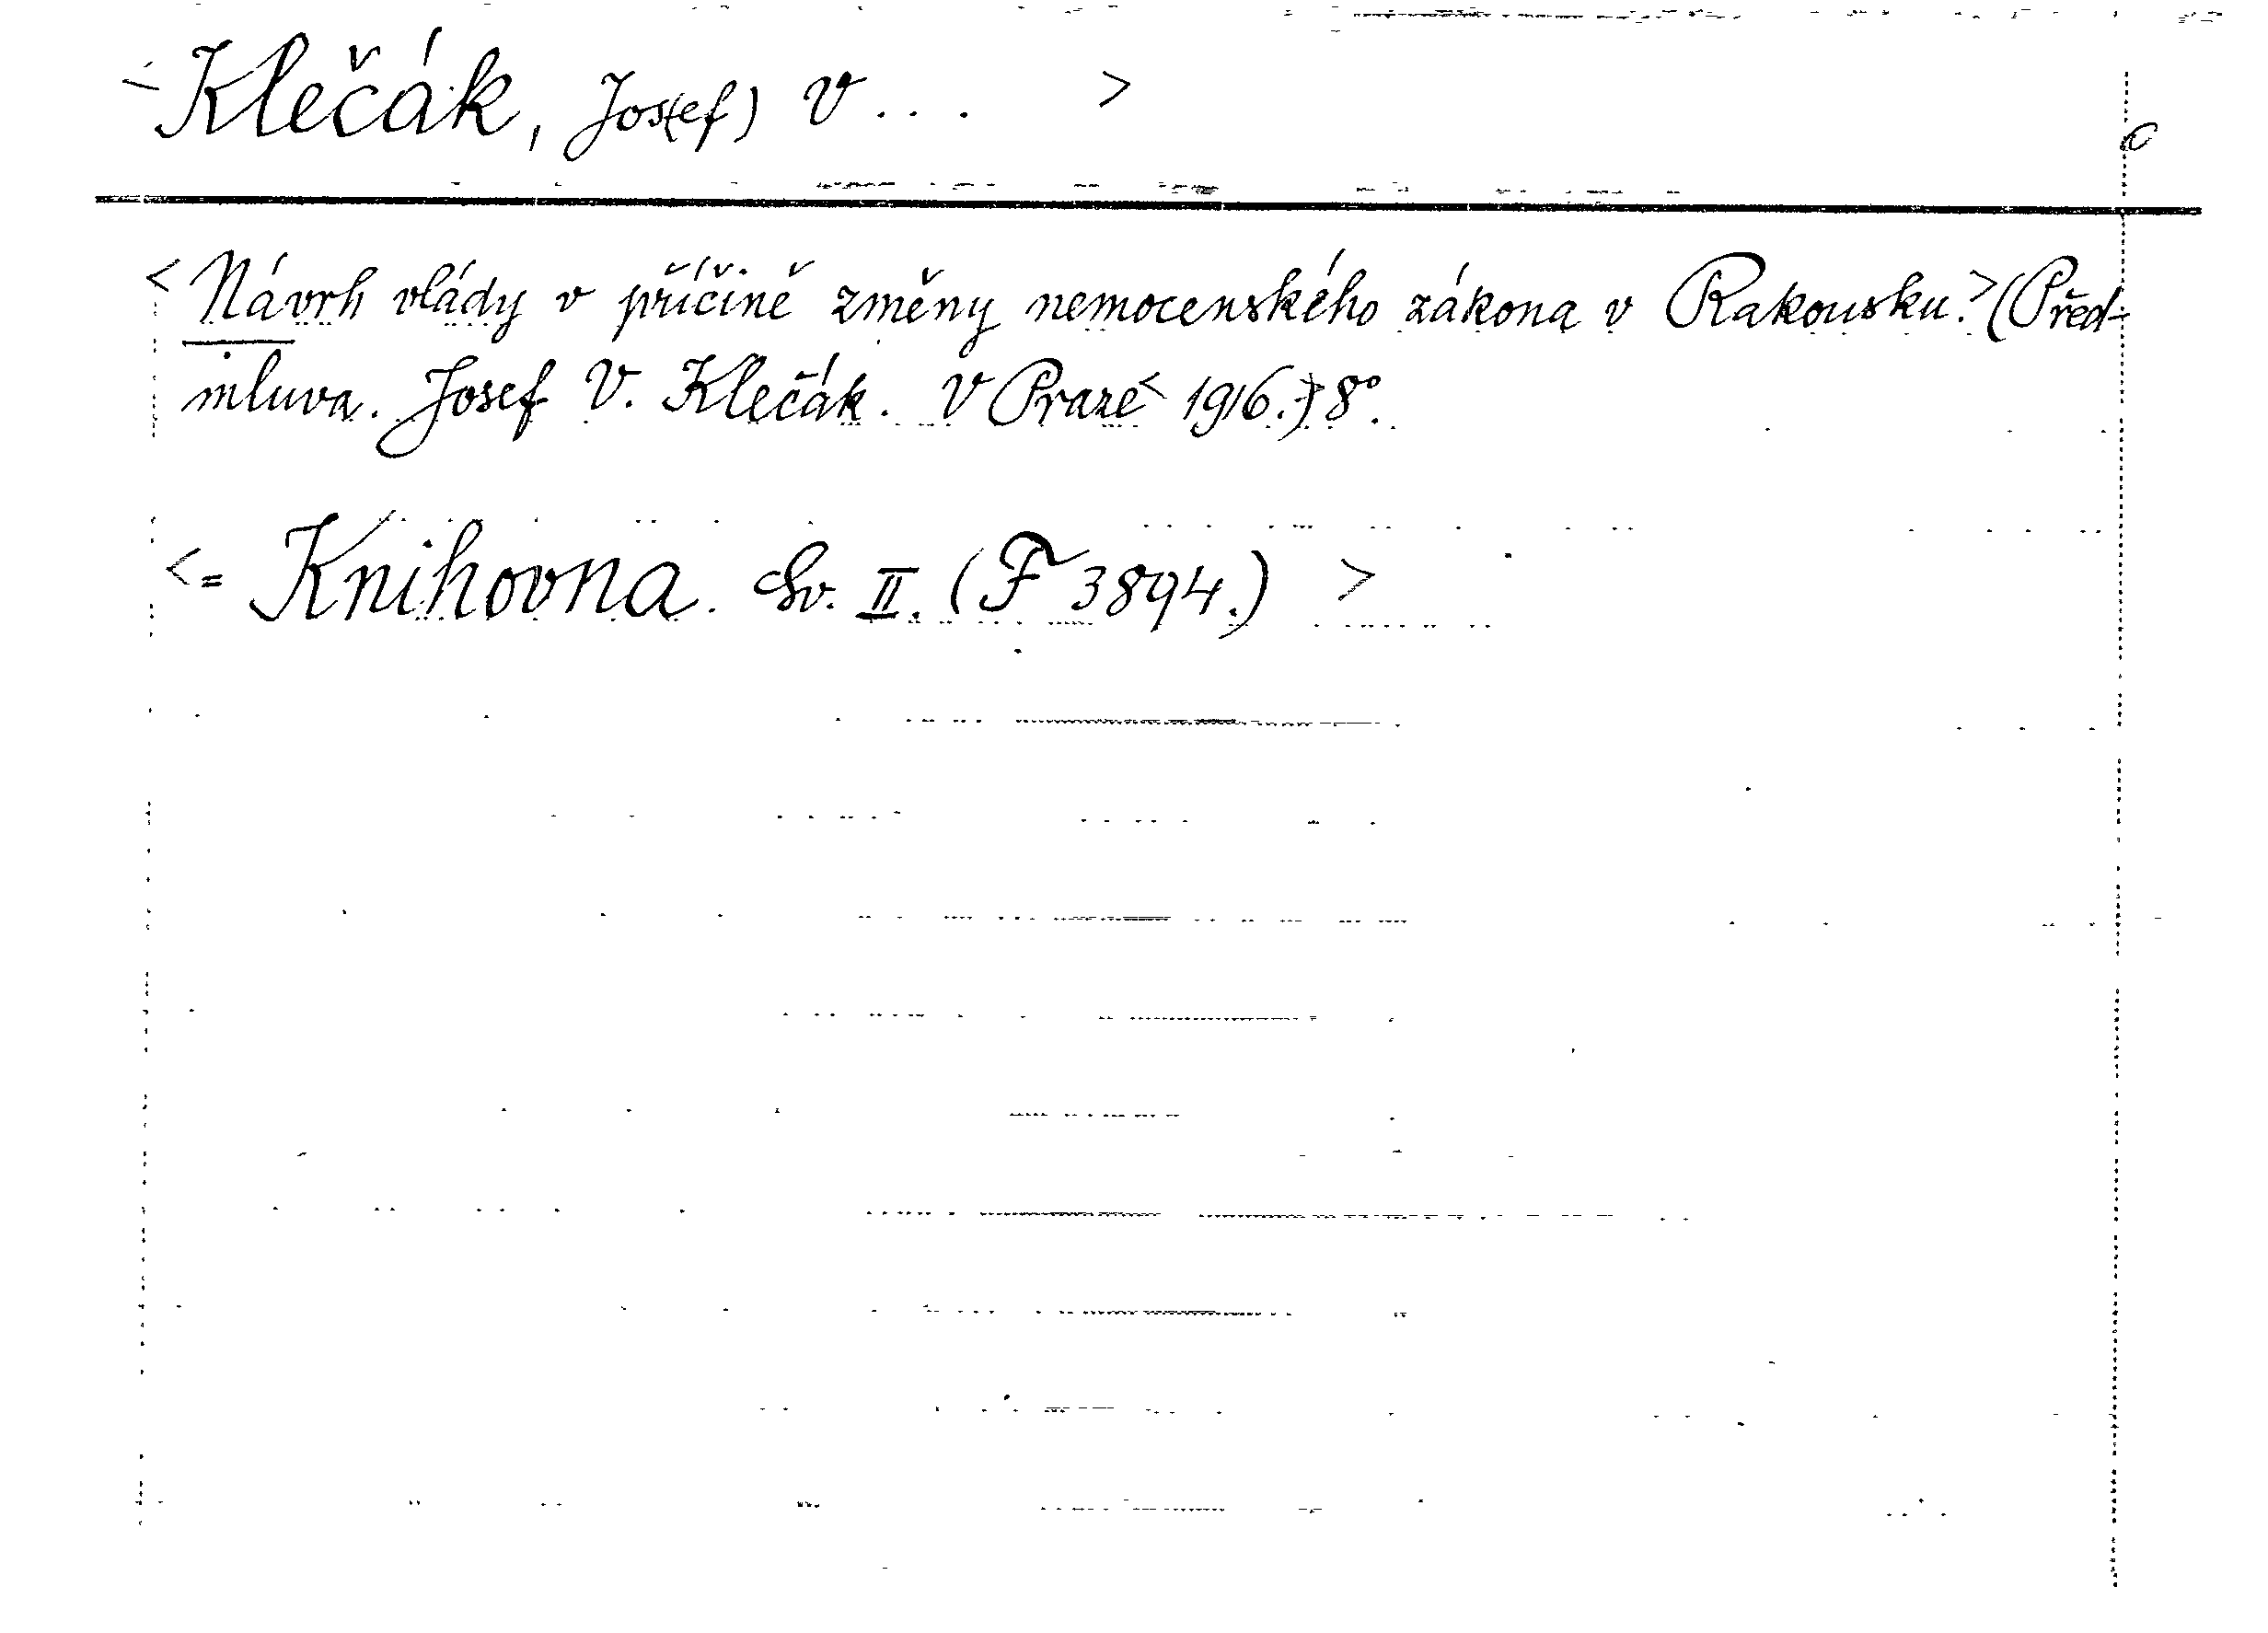 <Klečák, Jos(ef) V... >
<Návrh vlády v příčině změny nemocenského zákona v Rakousku.> (Před-
mluva. Josef V. Klečák. V Praze < 1916.) 8°.
<= Knihovna. Sv. II. (F 3894.) >